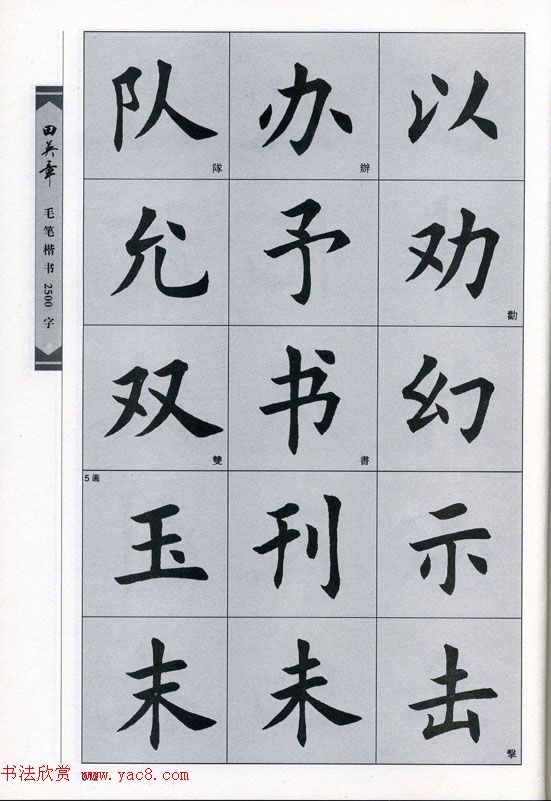 田英章
毛笔楷书2500字
队 隊 办 辦 以
允 予 劝 勸
双 雙 书 書 幻
5画
玉 刊 示
末 未 击 擊
书法欣赏 www.yac8.com
012